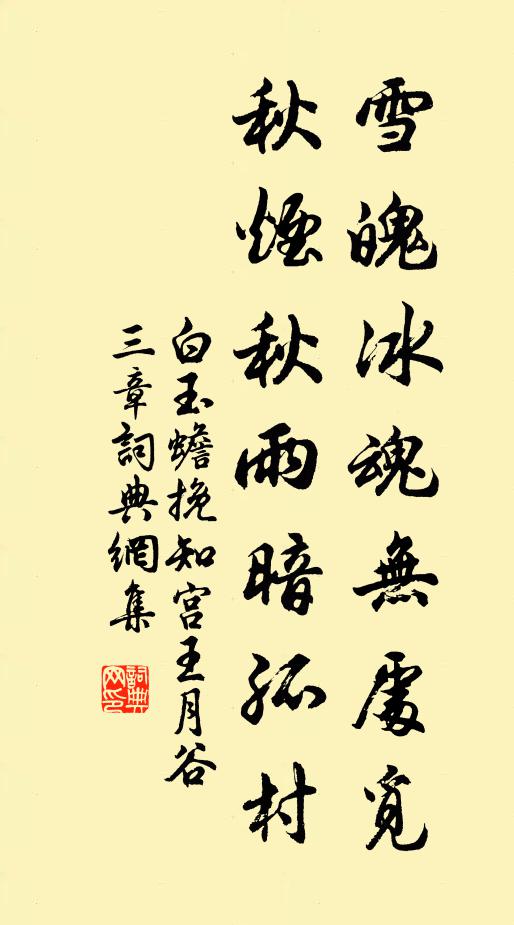 雪魄冰魂無處覓
秋煙秋雨暗孤村
白玉蟾挽知宮王月谷
三章詞典網集
詞典網印